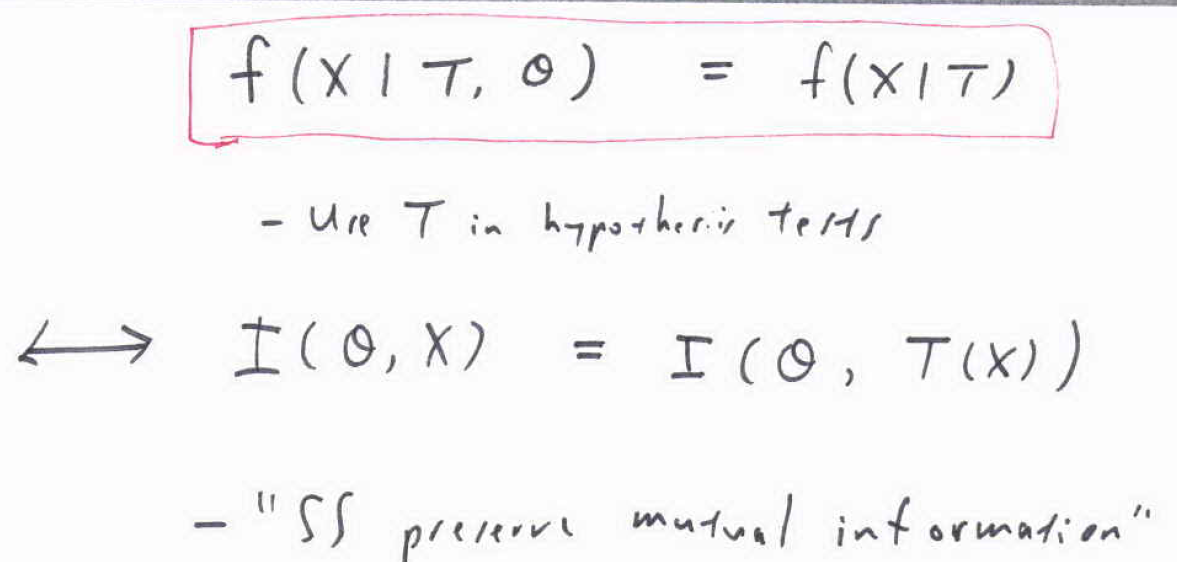 f(X | T, θ) = f(X | T)
- Use T in hypothesis tests
⟷ I(θ, X) = I(θ, T(X))
- "SS preserve mutual information"